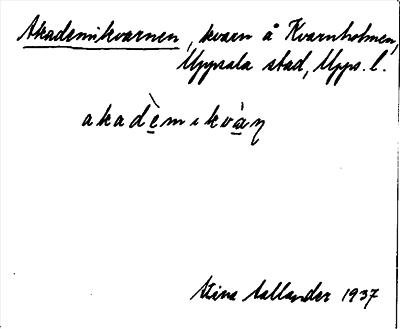 Akademikvarnen, kvarn å Kvarnholmen,
Uppsala stad, Upps. l.
akadèmıkvàη
Stina Sallander 1937